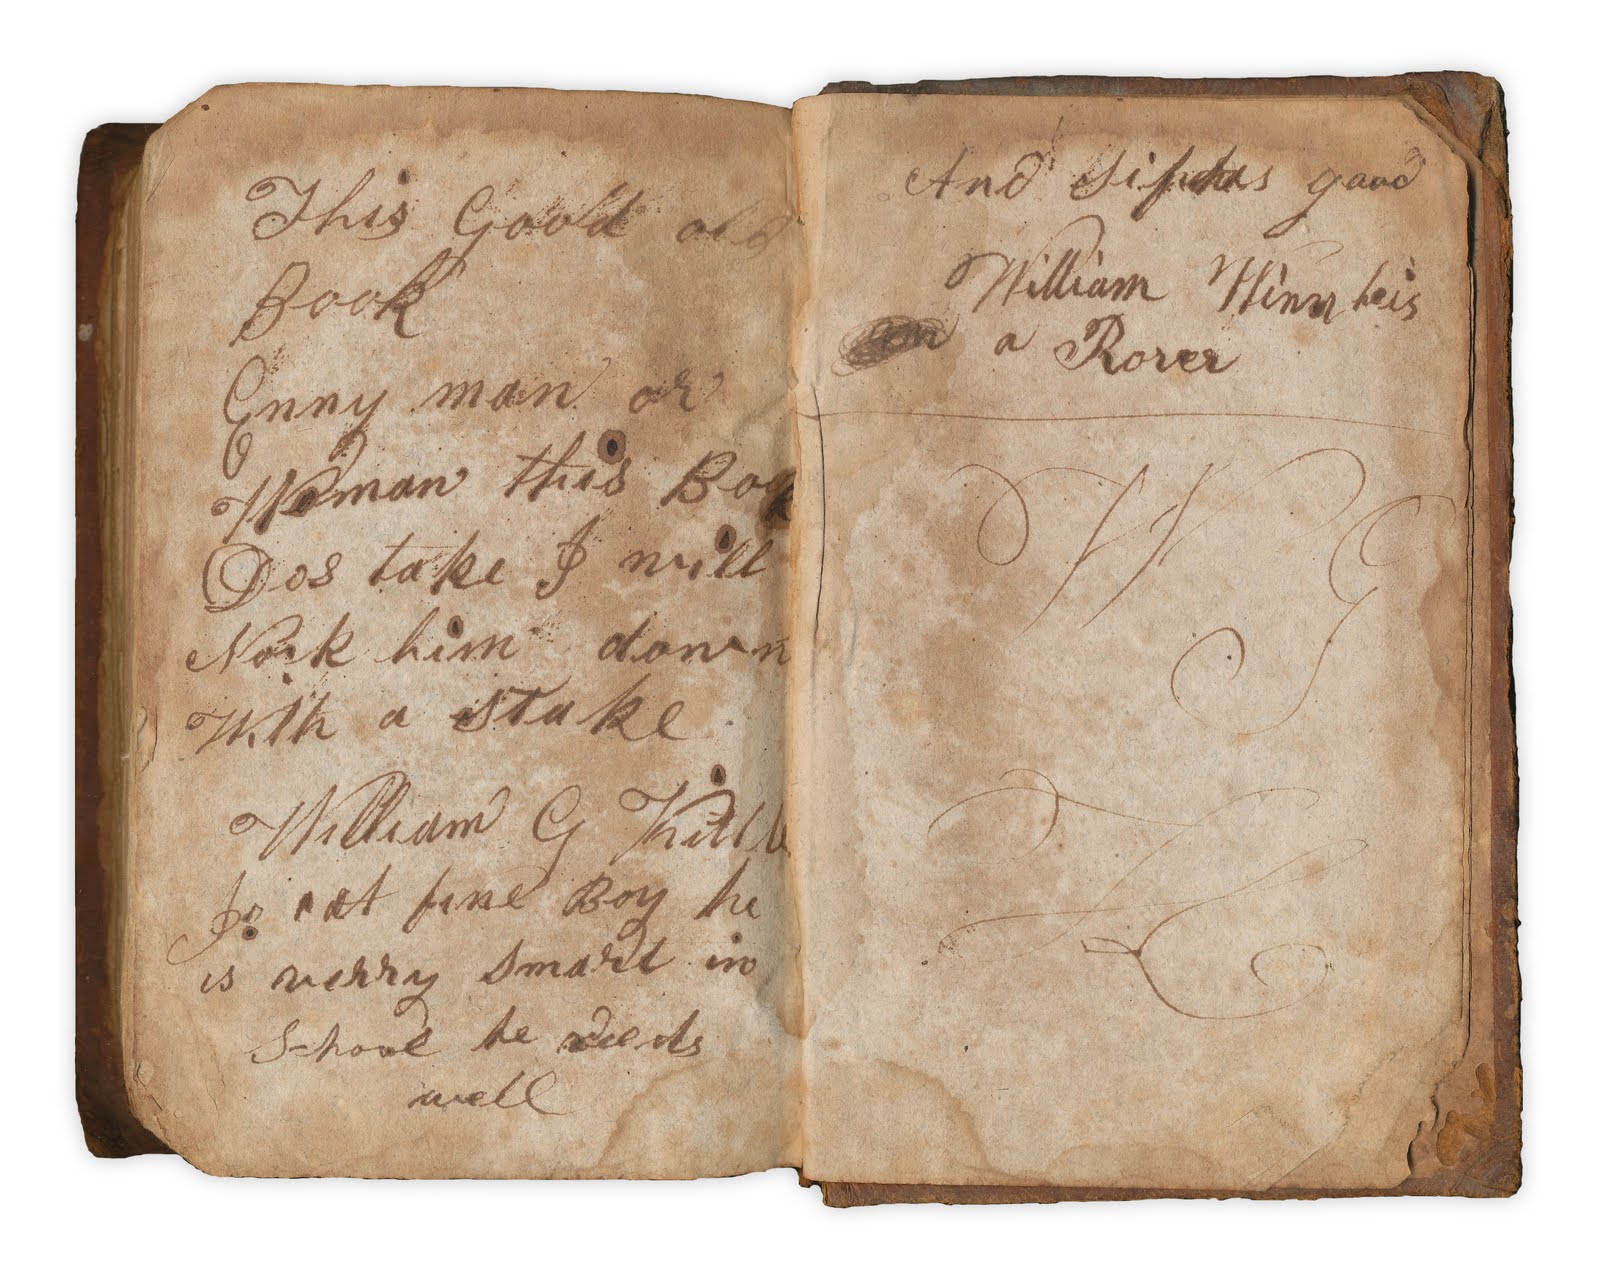 This Good old
Book
Enny man or
Woman this Book
Dos take I will
Nock him down
With a stake
William G
Is fine Boy he
is verry smart in
School he reeds
well
And good
William Winn heis
a Rover
W G